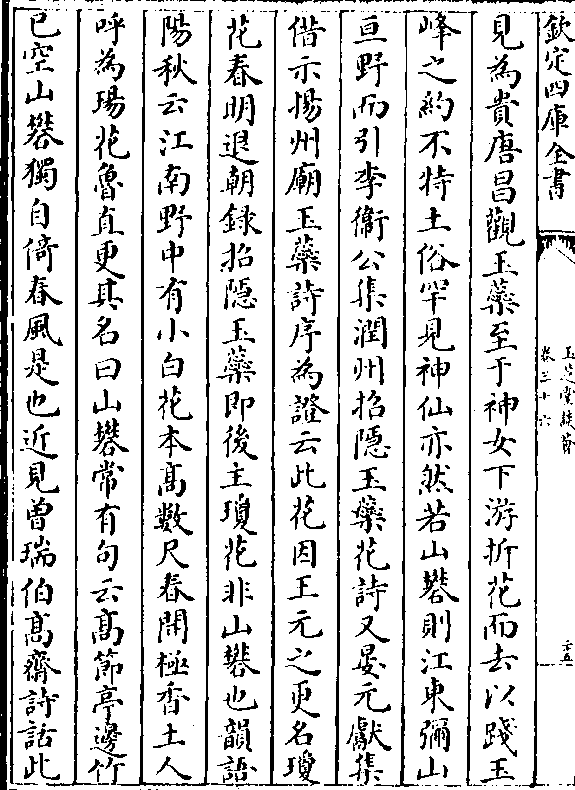 欽定四庫全書
玉芝堂談薈
卷三十六
二十五
見為貴唐昌觀玉蘂至于神女下游折花而去以踐玉
峰之約不特土俗罕見神仙亦然若山礬則江東彌山
亘野而引李衛公集潤州招隱玉蘂花詩又晏元獻集
借示揚州廟玉蘂詩序為證云此花因王元之更名瓊
花春明退朝録招隠玉蘂即後主瓊花非山礬也韻語
陽秋云江南野中有小白花本髙數尺春開極香土人
呼為瑒花魯直更其名曰山礬常有句云髙節亭邊竹
已空山礬獨自倚春風是也近見曾瑞伯髙齋詩話此